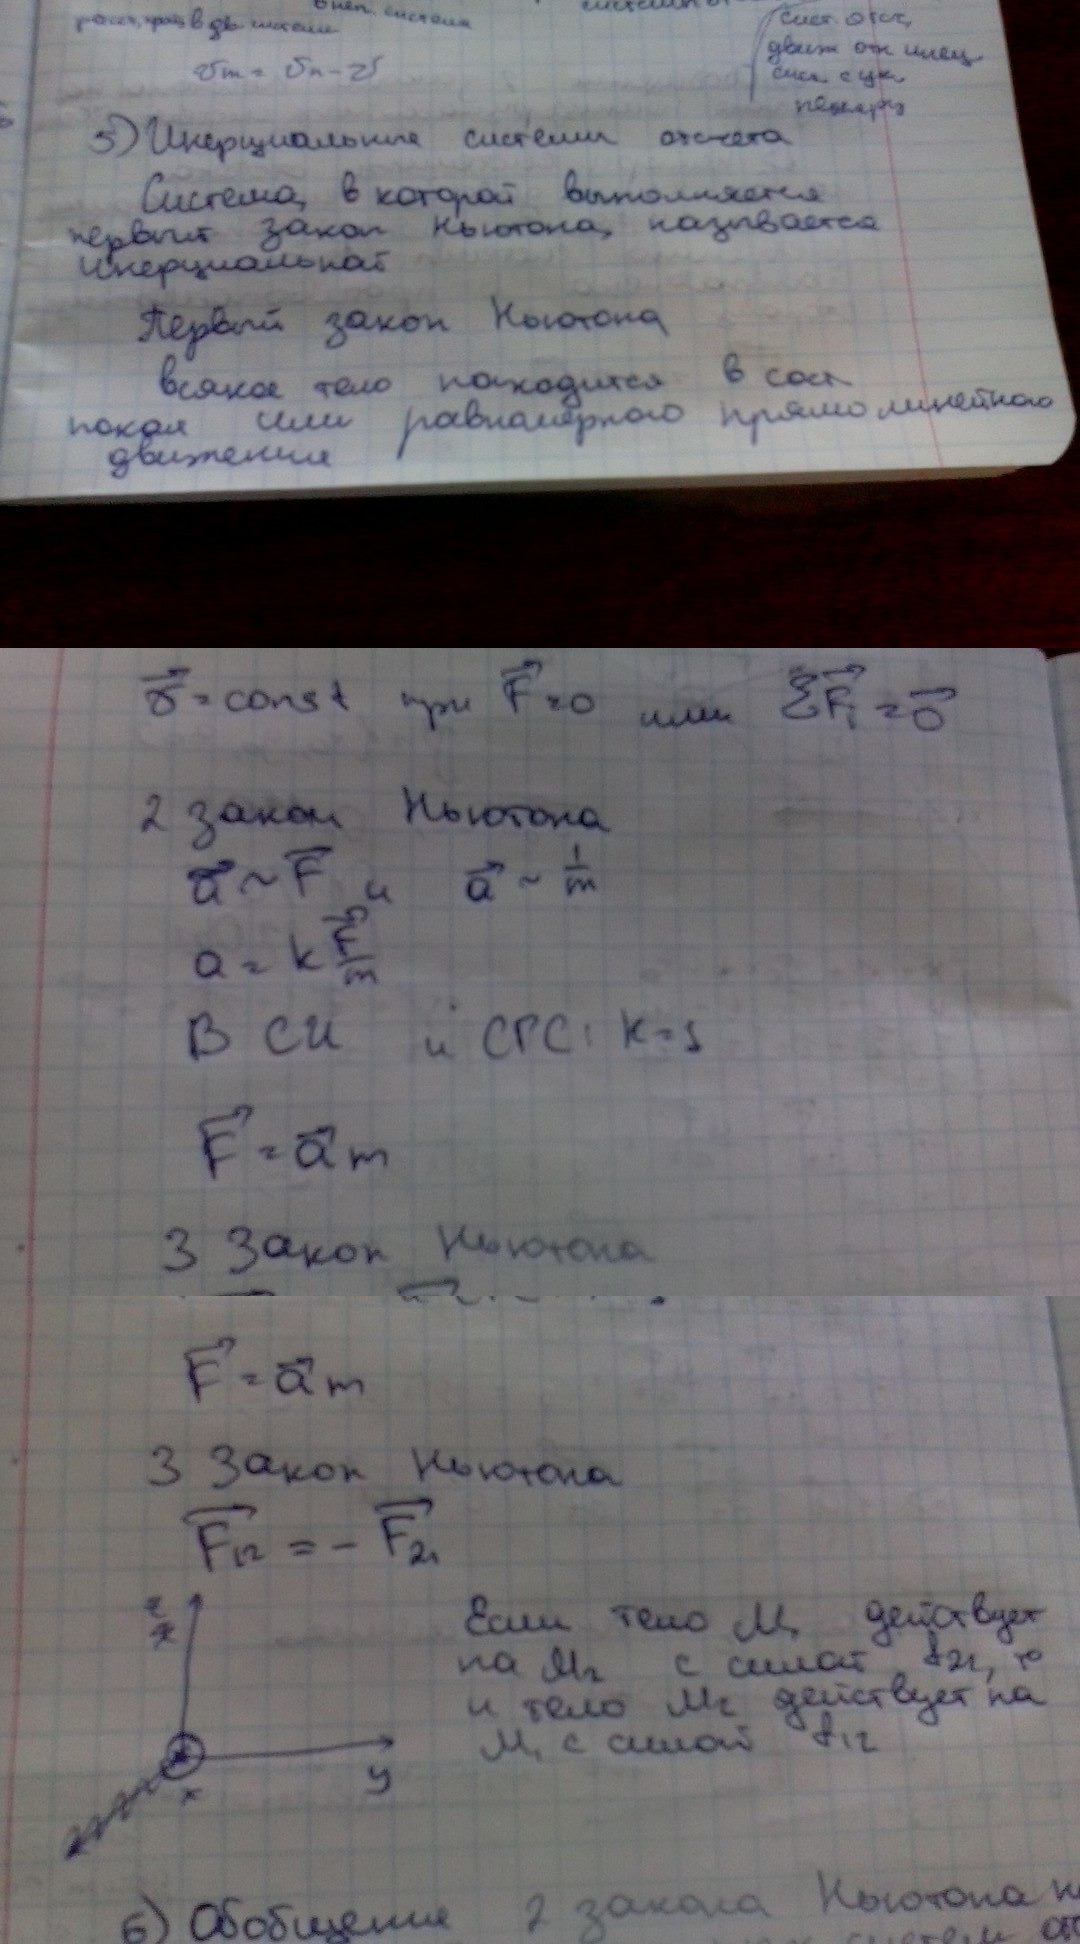 системы
υm = υn - υ
сист. отсч,
движ отн инец
сист. с уск.
5) Инерциальные системы отсчета
Система, в которой выполняется
первый закон Ньютона, называется
инерциальной
Первый закон Ньютона
всякое тело находится в сост
покоя или равномерного прямолинейного
движения
υ⃗ = const при F⃗ = 0 или ΣF⃗i = 0⃗
2 закон Ньютона
a⃗ ~ F⃗ и a⃗ ~ 1/m
a = k F⃗/m
В СИ и СГС: k=1
F⃗ = a⃗ m
3 Закон Ньютона
F⃗ = a⃗ m
3 Закон Ньютона
F⃗12 = - F⃗21
z
Если тело M1 действует
на M2 с силой f21, то
и тело M2 действует на
M1 с силой f12
y
x
6) Обобщение 2 закона Ньютона н
систем от